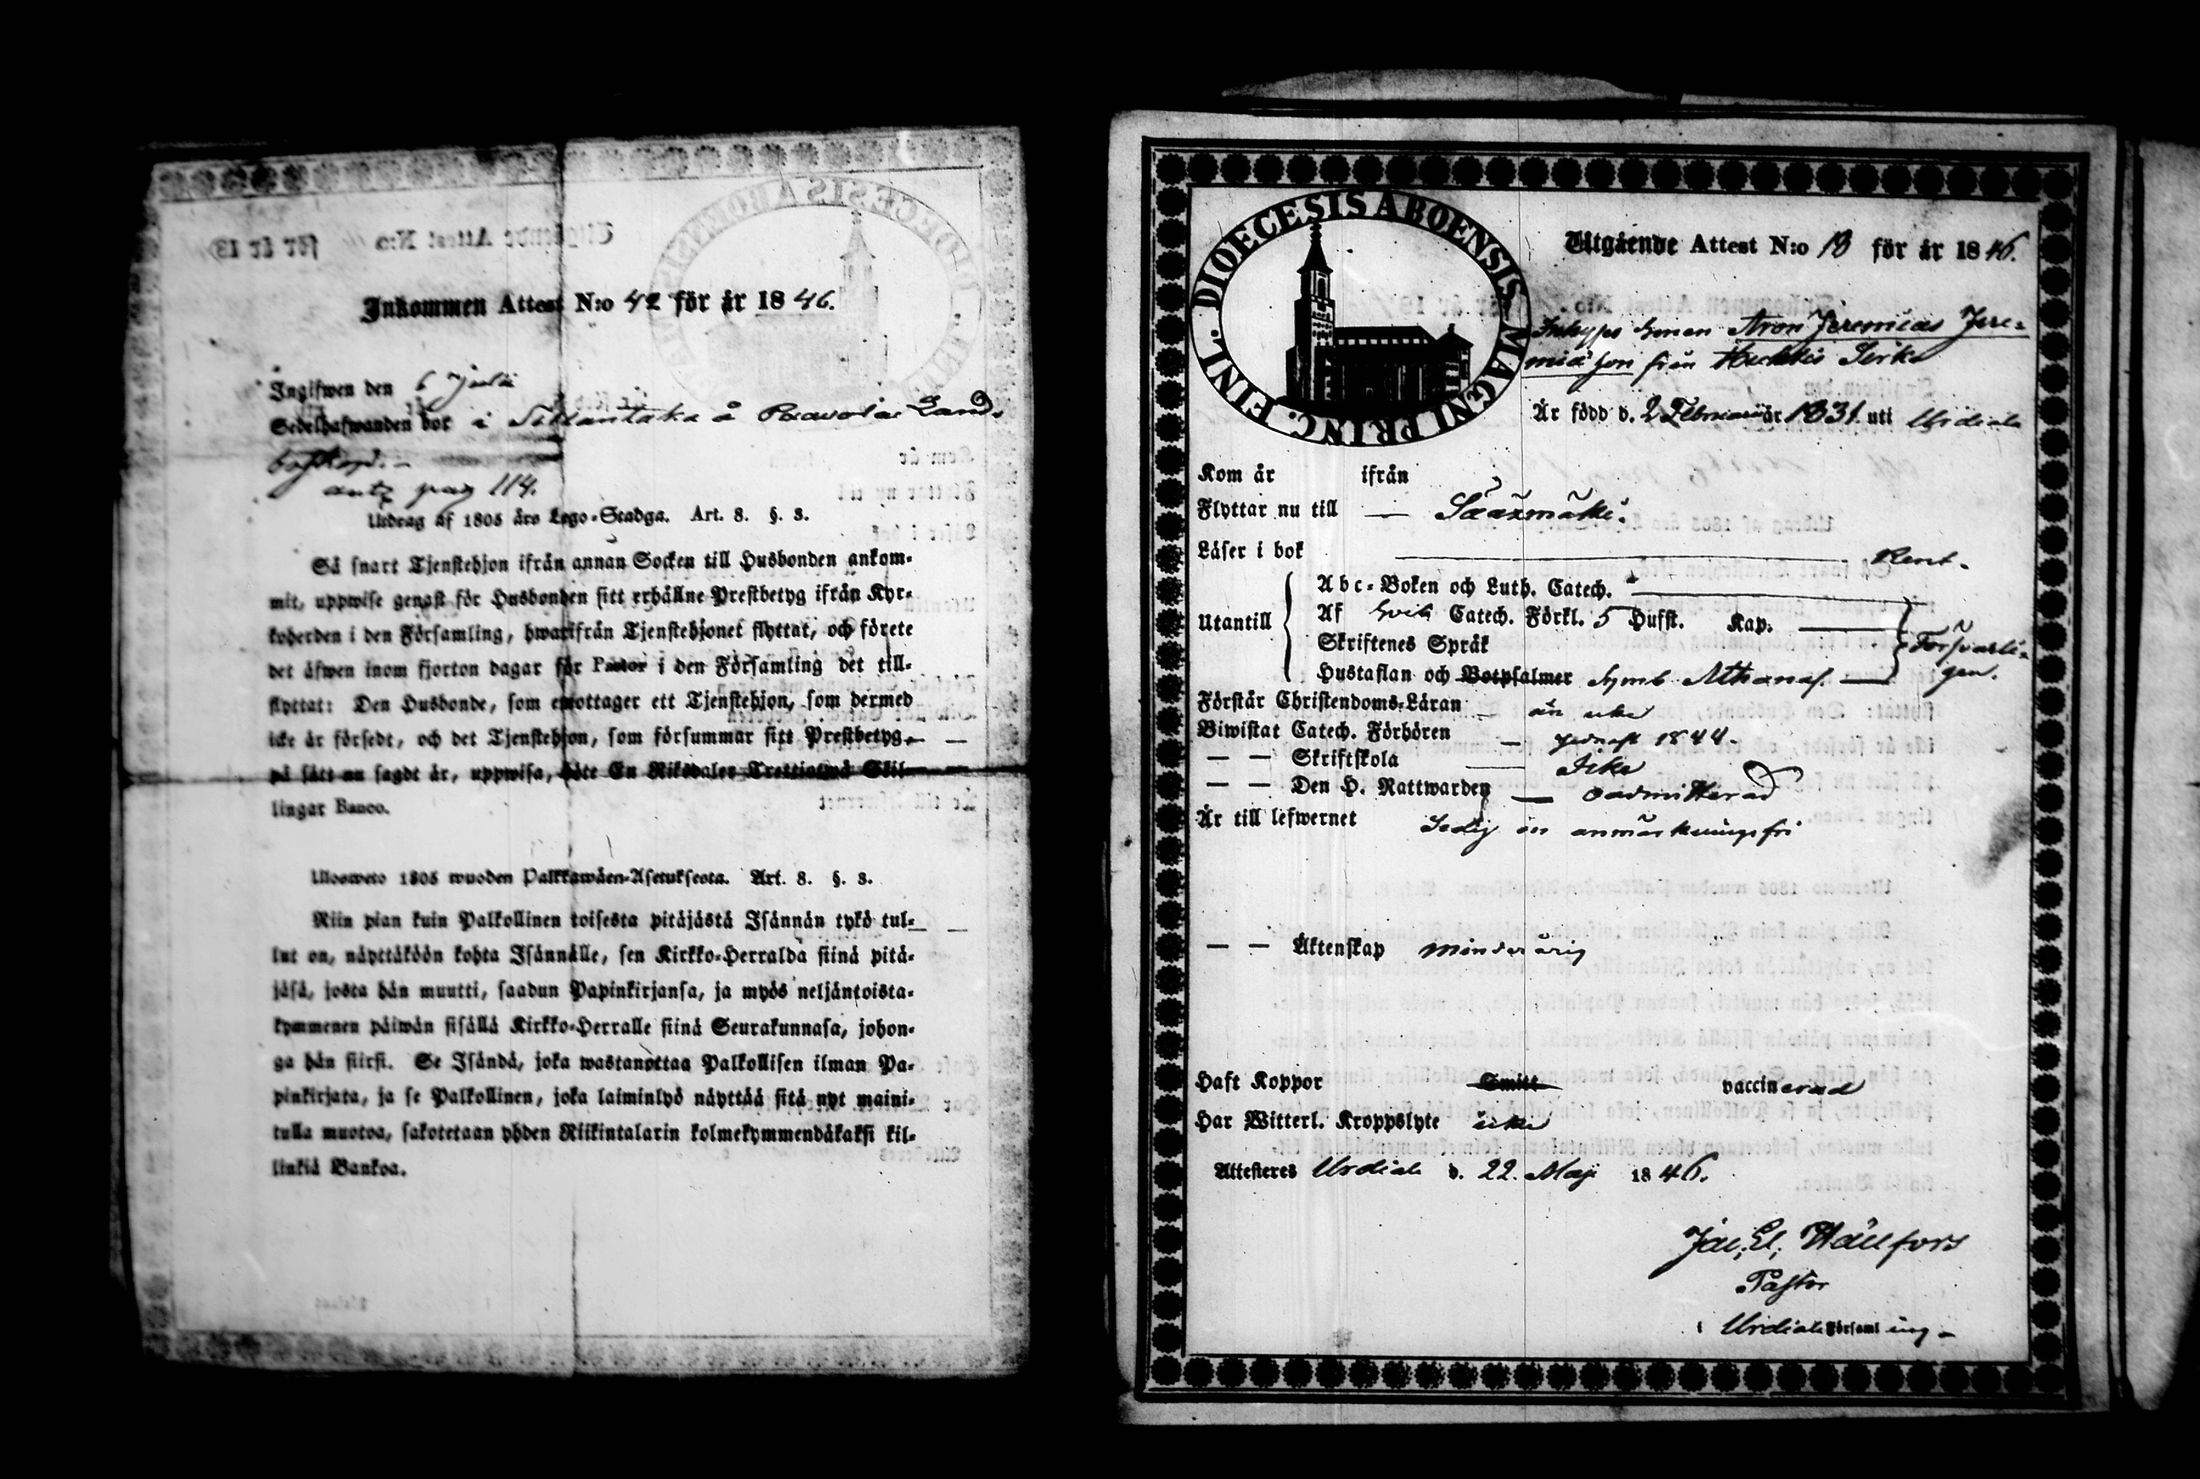 Inkommen Attest N:o 42 för år 1846.
Ingifwen den 6 Julii
Sedelhafwanden bor i Sillantaka å Land-
antz pag 114.
Utdrag af 1805 års Lego-Stadga. Art. 8. §. 3.
Så snart Tjenstehjon ifrån annan Socken till Husbonden ankom-
mit, uppwise genast för Husbonden sitt erhållne Prestbetyg ifrån Kyr-
koherden i den Församling, hwarifrån Tjenstehjonet flyttat, och förete
det äfwen inom fjorton dagar för Pastor i den Församling det till-
flyttat: Den Husbonde, som emottager ett Tjenstehjon, som dermed
icke är försedt, och det Tjenstehjon, som försummar sitt Prestbetyg,
på sätt nu sagdt är, uppwisa, böte En Riksdaler Trettiotwå Skil-
lingar Banco.
Ulosweto 1805 wuoden Palkkawäen-Asetuksesta. Art. 8. §. 3.
Niin pian kuin Palkollinen toisesta pitäjästä Isännän tykö tul-
lut on, näyttäköön kohta Isännälle, sen Kirkko-Herralda siinä pitä-
jäsä, josta hän muutti, saadun Papinkirjansa, ja myös neljäntoista-
kymmenen päiwän sisällä Kirkko-Herralle siinä Seurakunnasa, johon-
ga hän siirsi. Se Isändä, joka wastanottaa Palkollisen ilman Pa-
pinkirjata, ja se Palkollinen, joka laiminlyö näyttää sitä nyt maini-
tulla muotoa, sakotetaan yhden Riikintalarin kolmekymmendäkaksi kil-
linkiä Bankoa.
DIOECESIS ABOENSIS MAGNI PRINC. FINL.
Utgående Attest N:o 13 för år 1846.
Aron Jeremias Jere-
miæ son från Huhtis
Är född d. 2 Februarii år 1831 uti Urdiala
Kom år ifrån
Flyttar nu till — Sääxmäki.
Läser i bok Rent.
Utantill
Abc-Boken och Luth. Catech.
Af Svib Catech. Förkl. 5 Hufst. Kap. —
Skriftenes Språk
Hustaflan och Botpsalmer Symb Athanas. —
Försvarli-
gen.
Förstår Christendoms-Läran — än icke
Biwistat Catech. Förhören — sednast 1844.
— — Skriftskola — Icke
— — Den H. Nattwarden — oadmitterad
Är till lefwernet Sedig en anmärkningsfri
— — Äktenskap minderårig
Haft Koppor Smitt vaccinerad
Har Witterl. Kroppslyte icke
Attesteres Urdiala d. 22. Maji 1846.
Jac. El. Wallfors
Pastor
i Urdiala Församling.